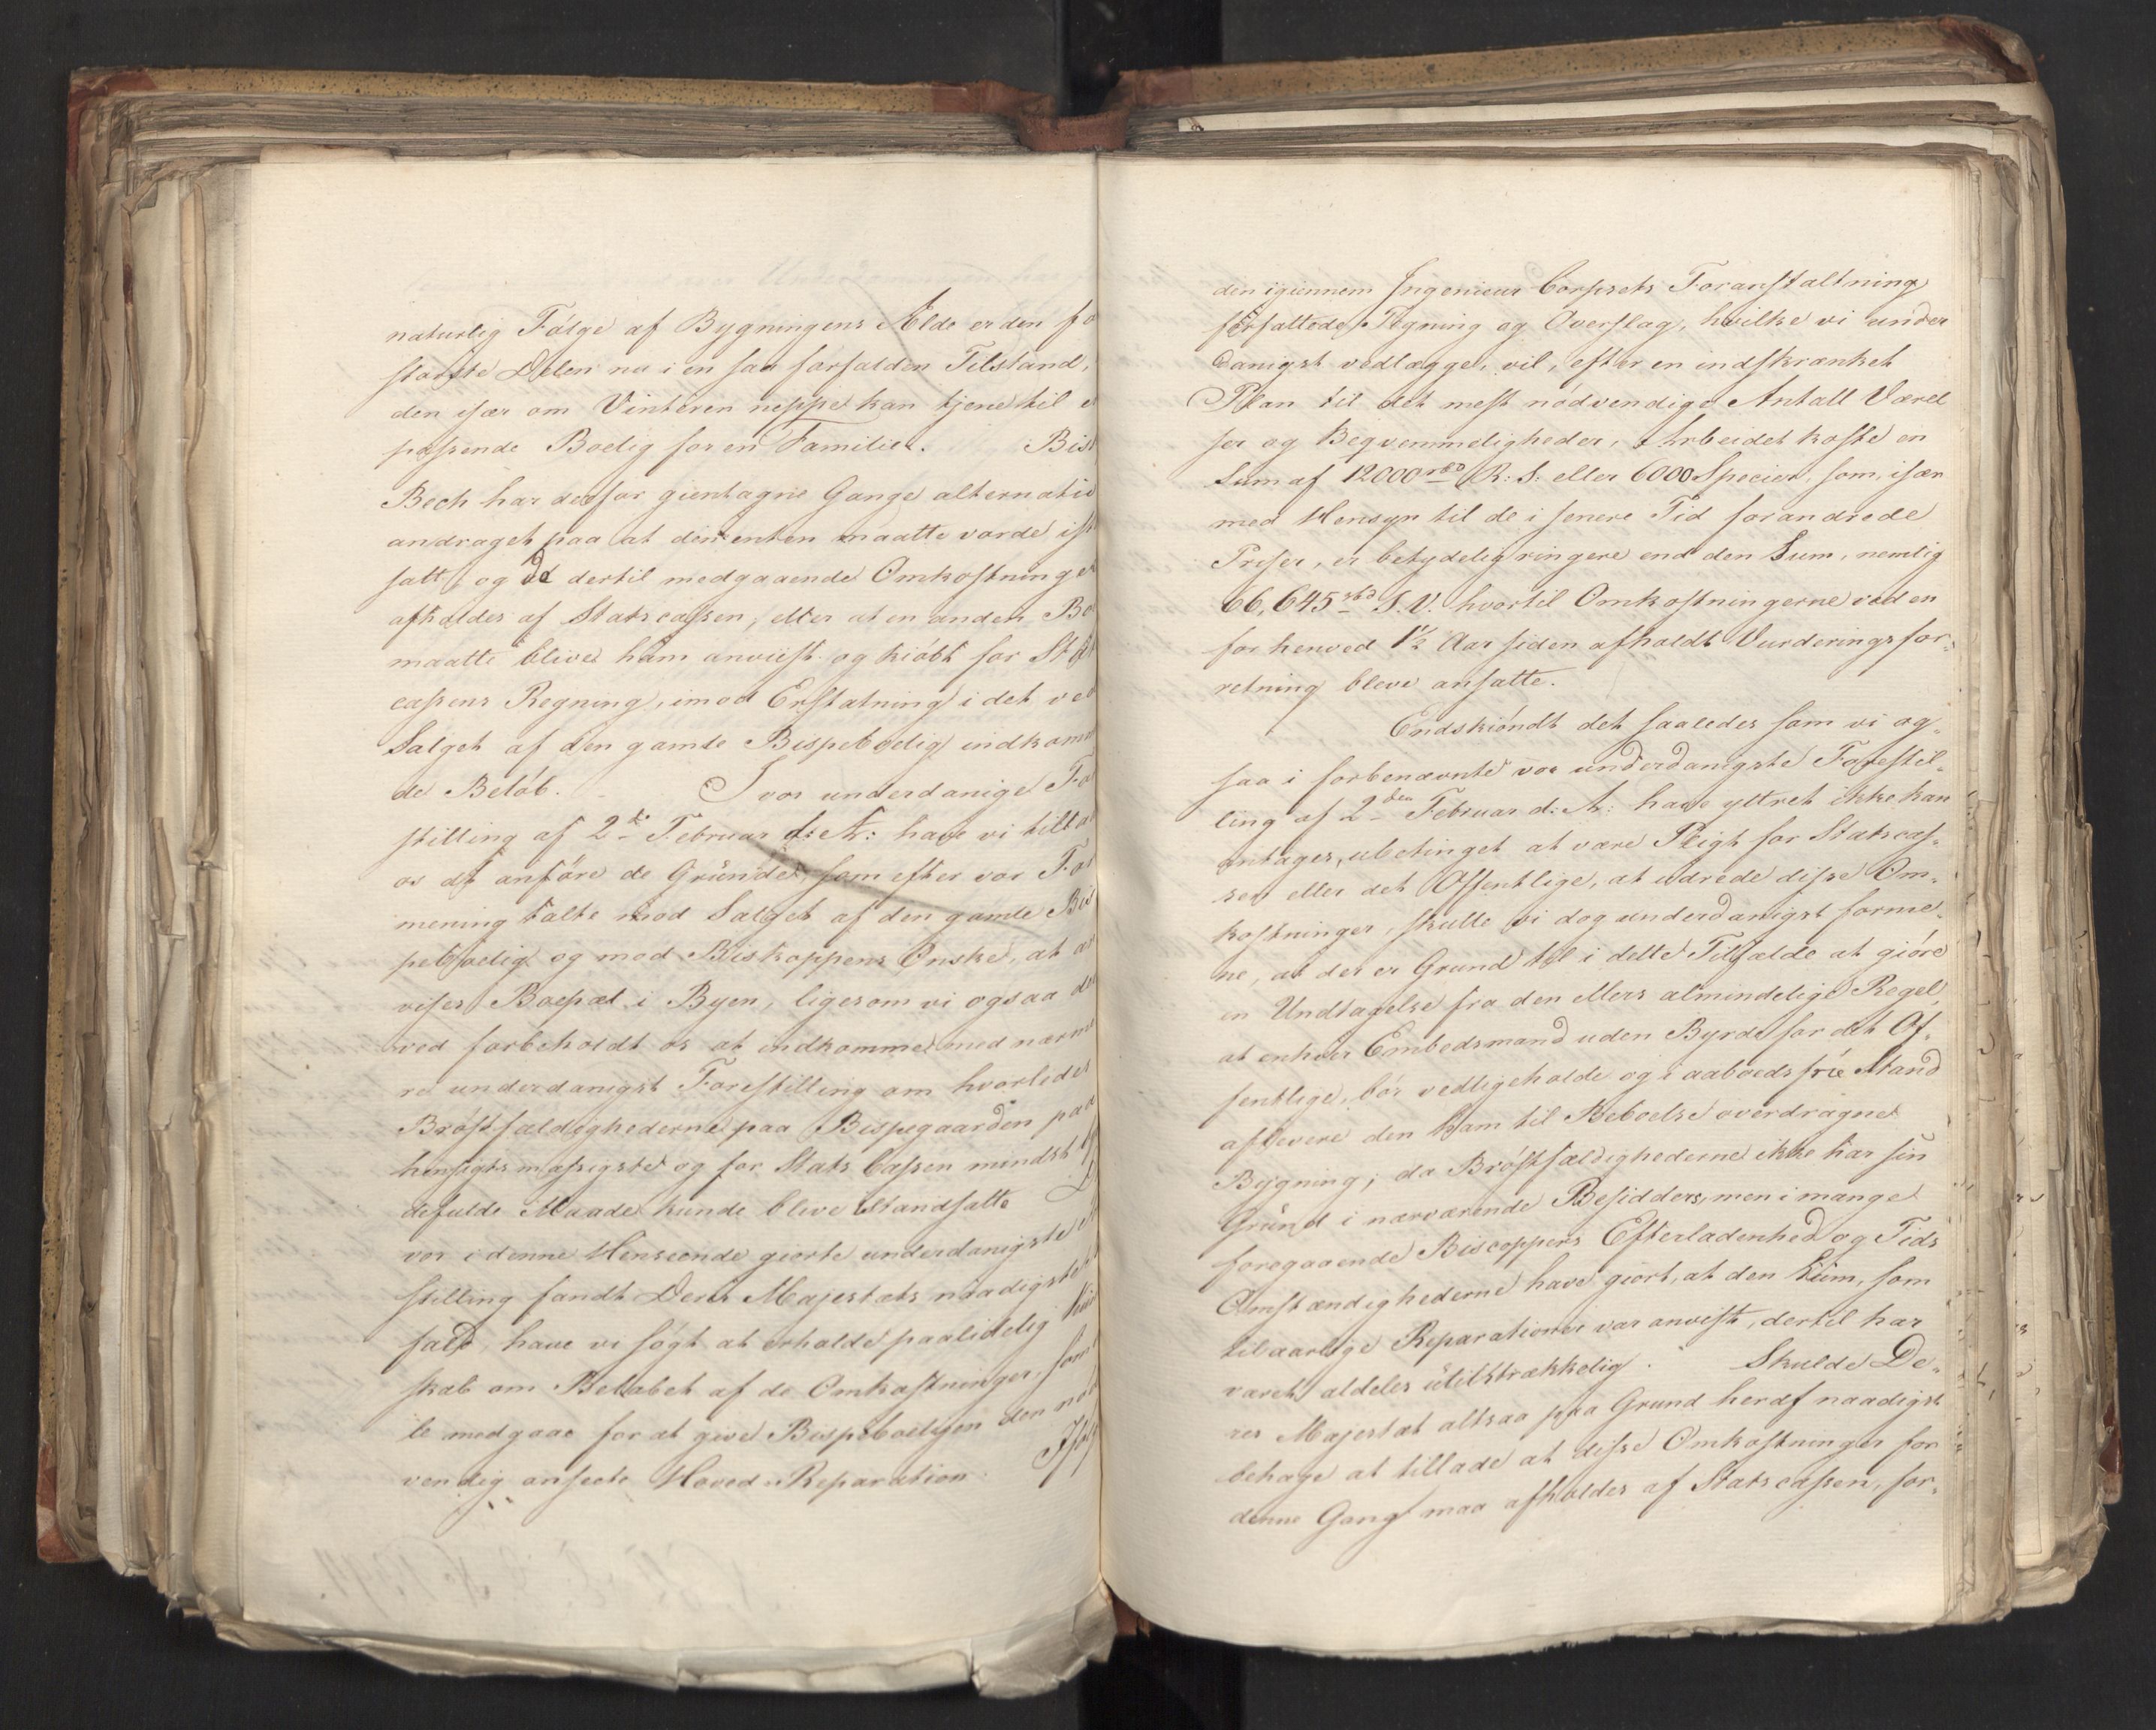 naturlig Følge af Bygningens Ælde er den fo
største Delen nu i en saa forfalden Tilstand,
den især om Vinteren neppe kan tjene til e
passende Boelig for en Familie. Bis
Bech har derfor gientagne Gange alternativ
andraget paa at den enten maatte vorde ist
satt, og de dertil medgaaende Omkostninger
afholdes af Statscassen, eller at en anden Bo
maatte blive ham anviist og kiøbt for Stats
cassens Regning, imod Erstatning i det ved
Salget af den gamle Bispeboelig indkom
de Beløb. I vor underdanige Fo
stilling af 2de Februar d: A: have vi tillad
os at anføre de Grunde, som efter vor For
mening talte mod Salget af den gamle Bis
peboelig og mod Biskoppens Ønske, at an
vises Boepæl i Byen, ligesom vi ogsaa de
ved forbeholdt os at indkomme med nærme
re underdanigst Forestilling om hvorledes
Brøstfældighederne paa Bispegaarden paa
hensigtsmæssigste og for Stats Cassen mindst by
defulde Maade kunde blive istandsatte
vor i denne Henseende giorte underdanigste
stilling fandt Deres Majestæts naadigste
fald, have vi søgt at erholde paalidelig kun
skab om Beløbet af de Omkostninger, som
le medgaae for at give Bispeboeligen den nød
vendig ansete Hoved-Reparation.
den igiennem Ingenieur Corpsets Foranstaltning
forfattede Tegning og Overslag, hvilke vi under
danigst vedlægge, vil, efter en indskrænket
Plan til det mest nødvendige Antall Værel
ser og Beqvemmeligheder, Arbeidet koste en
Sum af 12000 rbd R: S: eller 6000 Species, som, især
med Hensyn til de i senere Tid forandrede
Priser, er betydelig ringere end den Sum, nemlig
66,645 rbd S.V. hvortil Omkostningerne ved en
for henved 1½ Aar siden afholdt Vurderingsfor-
retning bleve ansatte.
Endskiøndt det saaledes som vi og-
saa i forbenævnte vor underdanigste Forestil-
ling af 2den Februar d: A: have yttret ikke kan
antages, ubetinget at være Pligt for Statscas-
sen eller det Offentlige, at udrede disse Om-
kostninger, skulle vi dog underdanigst forme-
ne, at der er Grund til i dette Tilfælde at giøre
en Undtagelse fra den ellers almindelige Regel,
at enhver Embedsmand uden Byrde for det Of-
fentlige, bør vedligeholde og i aaboedsfrie Stand
aflevere den ham til Beboelse overdragne
Bygning; da Brøstfældighederne ikke har sin
Grund i nærværende Besidders, men i mange
foregaaende Biscoppers Efterladenhed og Tids
Omstændighederne have giort, at den Sum, som
til aarlige Reparationer var anviist, dertil har
været aldeles utilstrækkelig. Skulde De-
res Majestæt altsaa paa Grund heraf naadigst
behage at tillade at disse Omkostninger for
denne Gang maa afholdes af Statscassen, for-